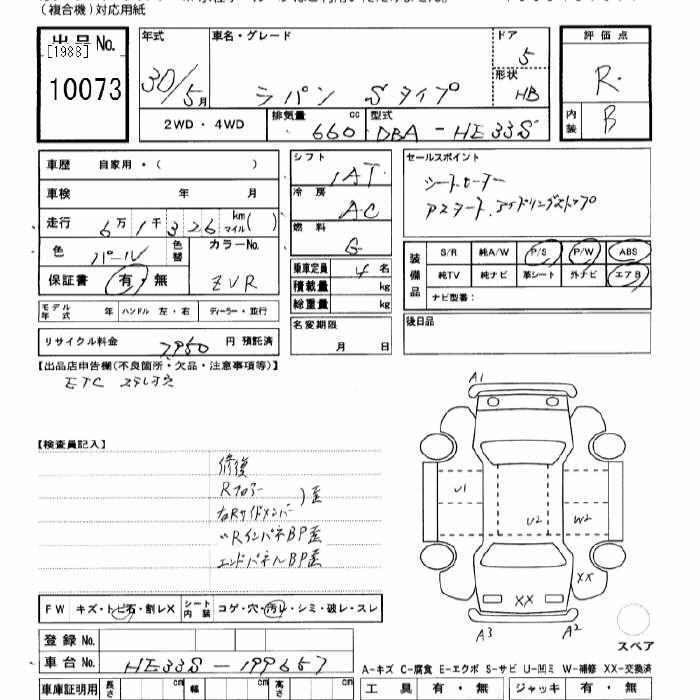 (複合機)対応用紙
出品 No.
[1988]
10073
年式 30/5月
車名・グレード
ラパン Sタイプ
ドア 5
形状 HB
評価点
R
内装 B
2WD・4WD
排気量 660 cc
型式 DBA-HE33S
車歴 自家用・( )
車検 年 月
走行 6万1千326 km マイル( )
色 パール 色替
カラーNo. ZVR
保証書 有・無
シフト IAT
冷房 AC
燃料 G
乗車定員 4名
積載量 kg
総重量 kg
セールスポイント
シートヒーター
Pスタート、アイドリングストップ
装備品
S/R 純A/W P/S P/W ABS
純TV 純ナビ 革シート 外ナビ エアB
ナビ型番:
モデル年式 年 ハンドル 左・右 ディーラー・並行
名変期限 月 日
後日品
リサイクル料金 7950 円 預託済
【出品店申告欄(不良箇所・欠品・注意事項等)】
ETC ステレオ穴
【検査員記入】
修復
Rフロアー
右Rサイドメンバー ) 歪
〃RインパネBP歪
エンドパネルBP歪
A1
U1
U2
W2
XX
XX
A3
A2
スペア
FW キズ・トビ石・割レX シート内装 コゲ・穴・汚レ・シミ・破レ・スレ
登録 No.
車台 No. HE33S-199657
A-キズ C-腐食 E-エクボ S-サビ U-凹ミ W-補修 XX-交換済
車庫証明用 長さ cm 幅 cm 高さ cm
工具 有・無 ジャッキ 有・無